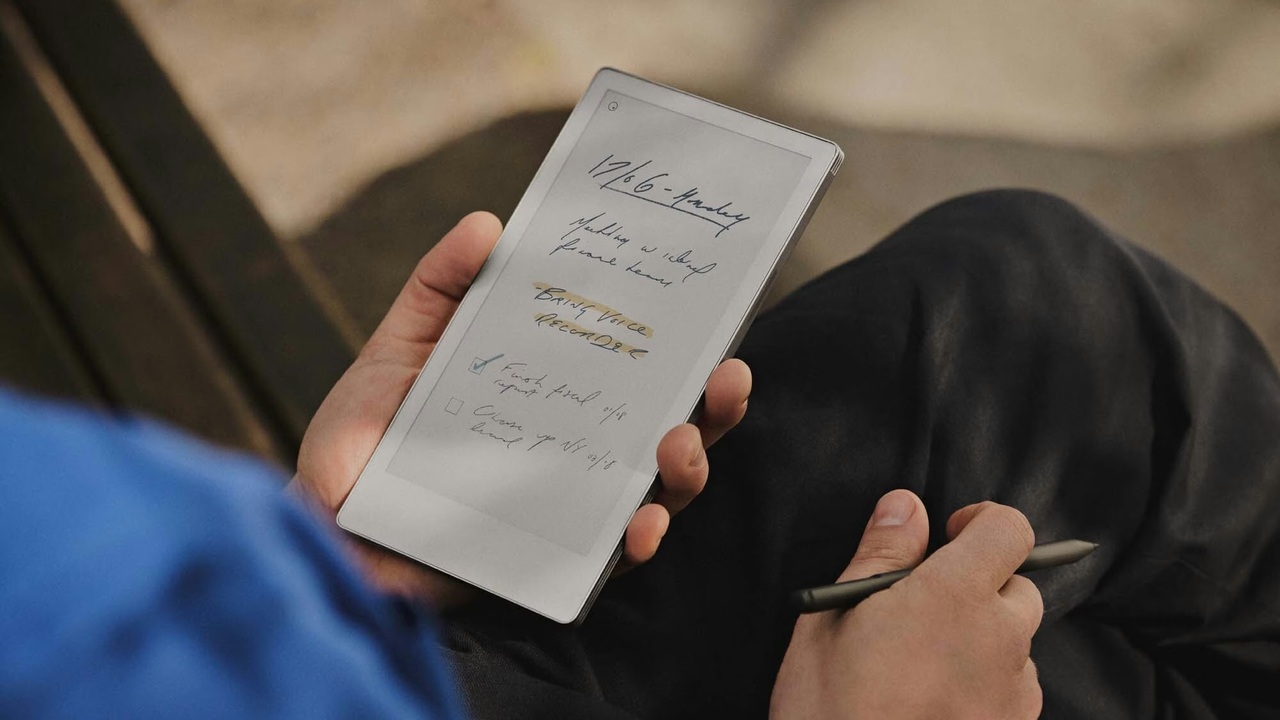 17/06 - Monday
Meeting w
finance team
- BRING VOICE
RECORDER
Finish fiscal 01/08
report
Close up NY 02/18